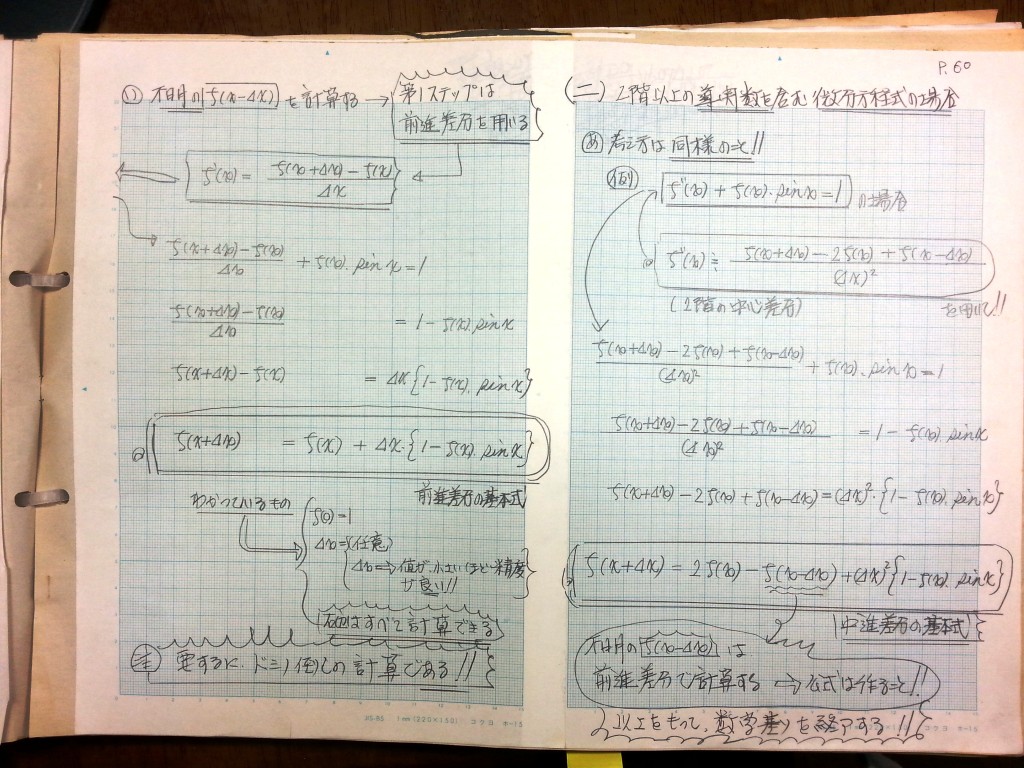 (ハ) 不明の ζ(x-Δx) を計算する → 第1ステップは
前進差分を用いる
ζ'(x) = \frac{ζ(x+Δx) - ζ(x)}{Δx}
\frac{ζ(x+Δx) - ζ(x)}{Δx} + ζ(x)·sin x = 1
\frac{ζ(x+Δx) - ζ(x)}{Δx} = 1 - ζ(x)·sin x
ζ(x+Δx) - ζ(x) = Δx{1 - ζ(x)·sin x}
ζ(x+Δx) = ζ(x) + Δx·{1 - ζ(x)·sin x}
前進差分の基本式
わかっているもの
ζ(0) = 1
Δx = (任意)
Δx → 値が小さいほど精度
が良い!!
右辺はすべて計算できる
注 要するに、ドミノ倒しの計算である!!
US-85 1mm(220×150) コクヨ ホ-15
P.60
(二) 2階以上の導関数を含む微分方程式の場合
あ 考え方は同様のこと!!
例 ζ''(x) + ζ(x)·sin x = 1 の場合
ζ''(x) ≒ \frac{ζ(x+Δx) - 2ζ(x) + ζ(x-Δx)}{(Δx)²}
(2階の中心差分) を用いて!!
\frac{ζ(x+Δx) - 2ζ(x) + ζ(x-Δx)}{(Δx)²} + ζ(x)·sin x = 1
\frac{ζ(x+Δx) - 2ζ(x) + ζ(x-Δx)}{(Δx)²} = 1 - ζ(x)·sin x
ζ(x+Δx) - 2ζ(x) + ζ(x-Δx) = (Δx)²·{1 - ζ(x)·sin x}
ζ(x+Δx) = 2ζ(x) - ζ(x-Δx) + (Δx)²{1 - ζ(x)·sin x}
中進差分の基本式
不明の ζ(x-Δx) は
前進差分で計算する → 公式は作ること!!
以上をもって、数学基リを終了する!!
コクヨ ホ-15